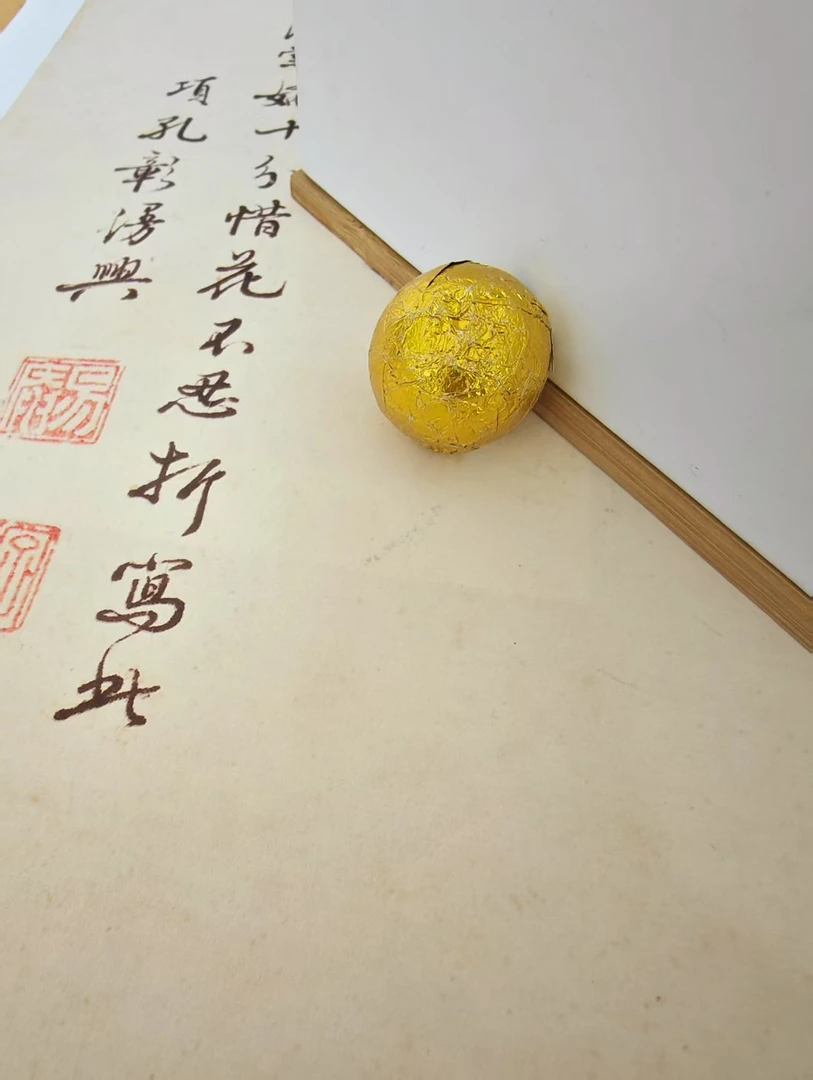 十分惜花不忍折寫此
項孔彰漫興